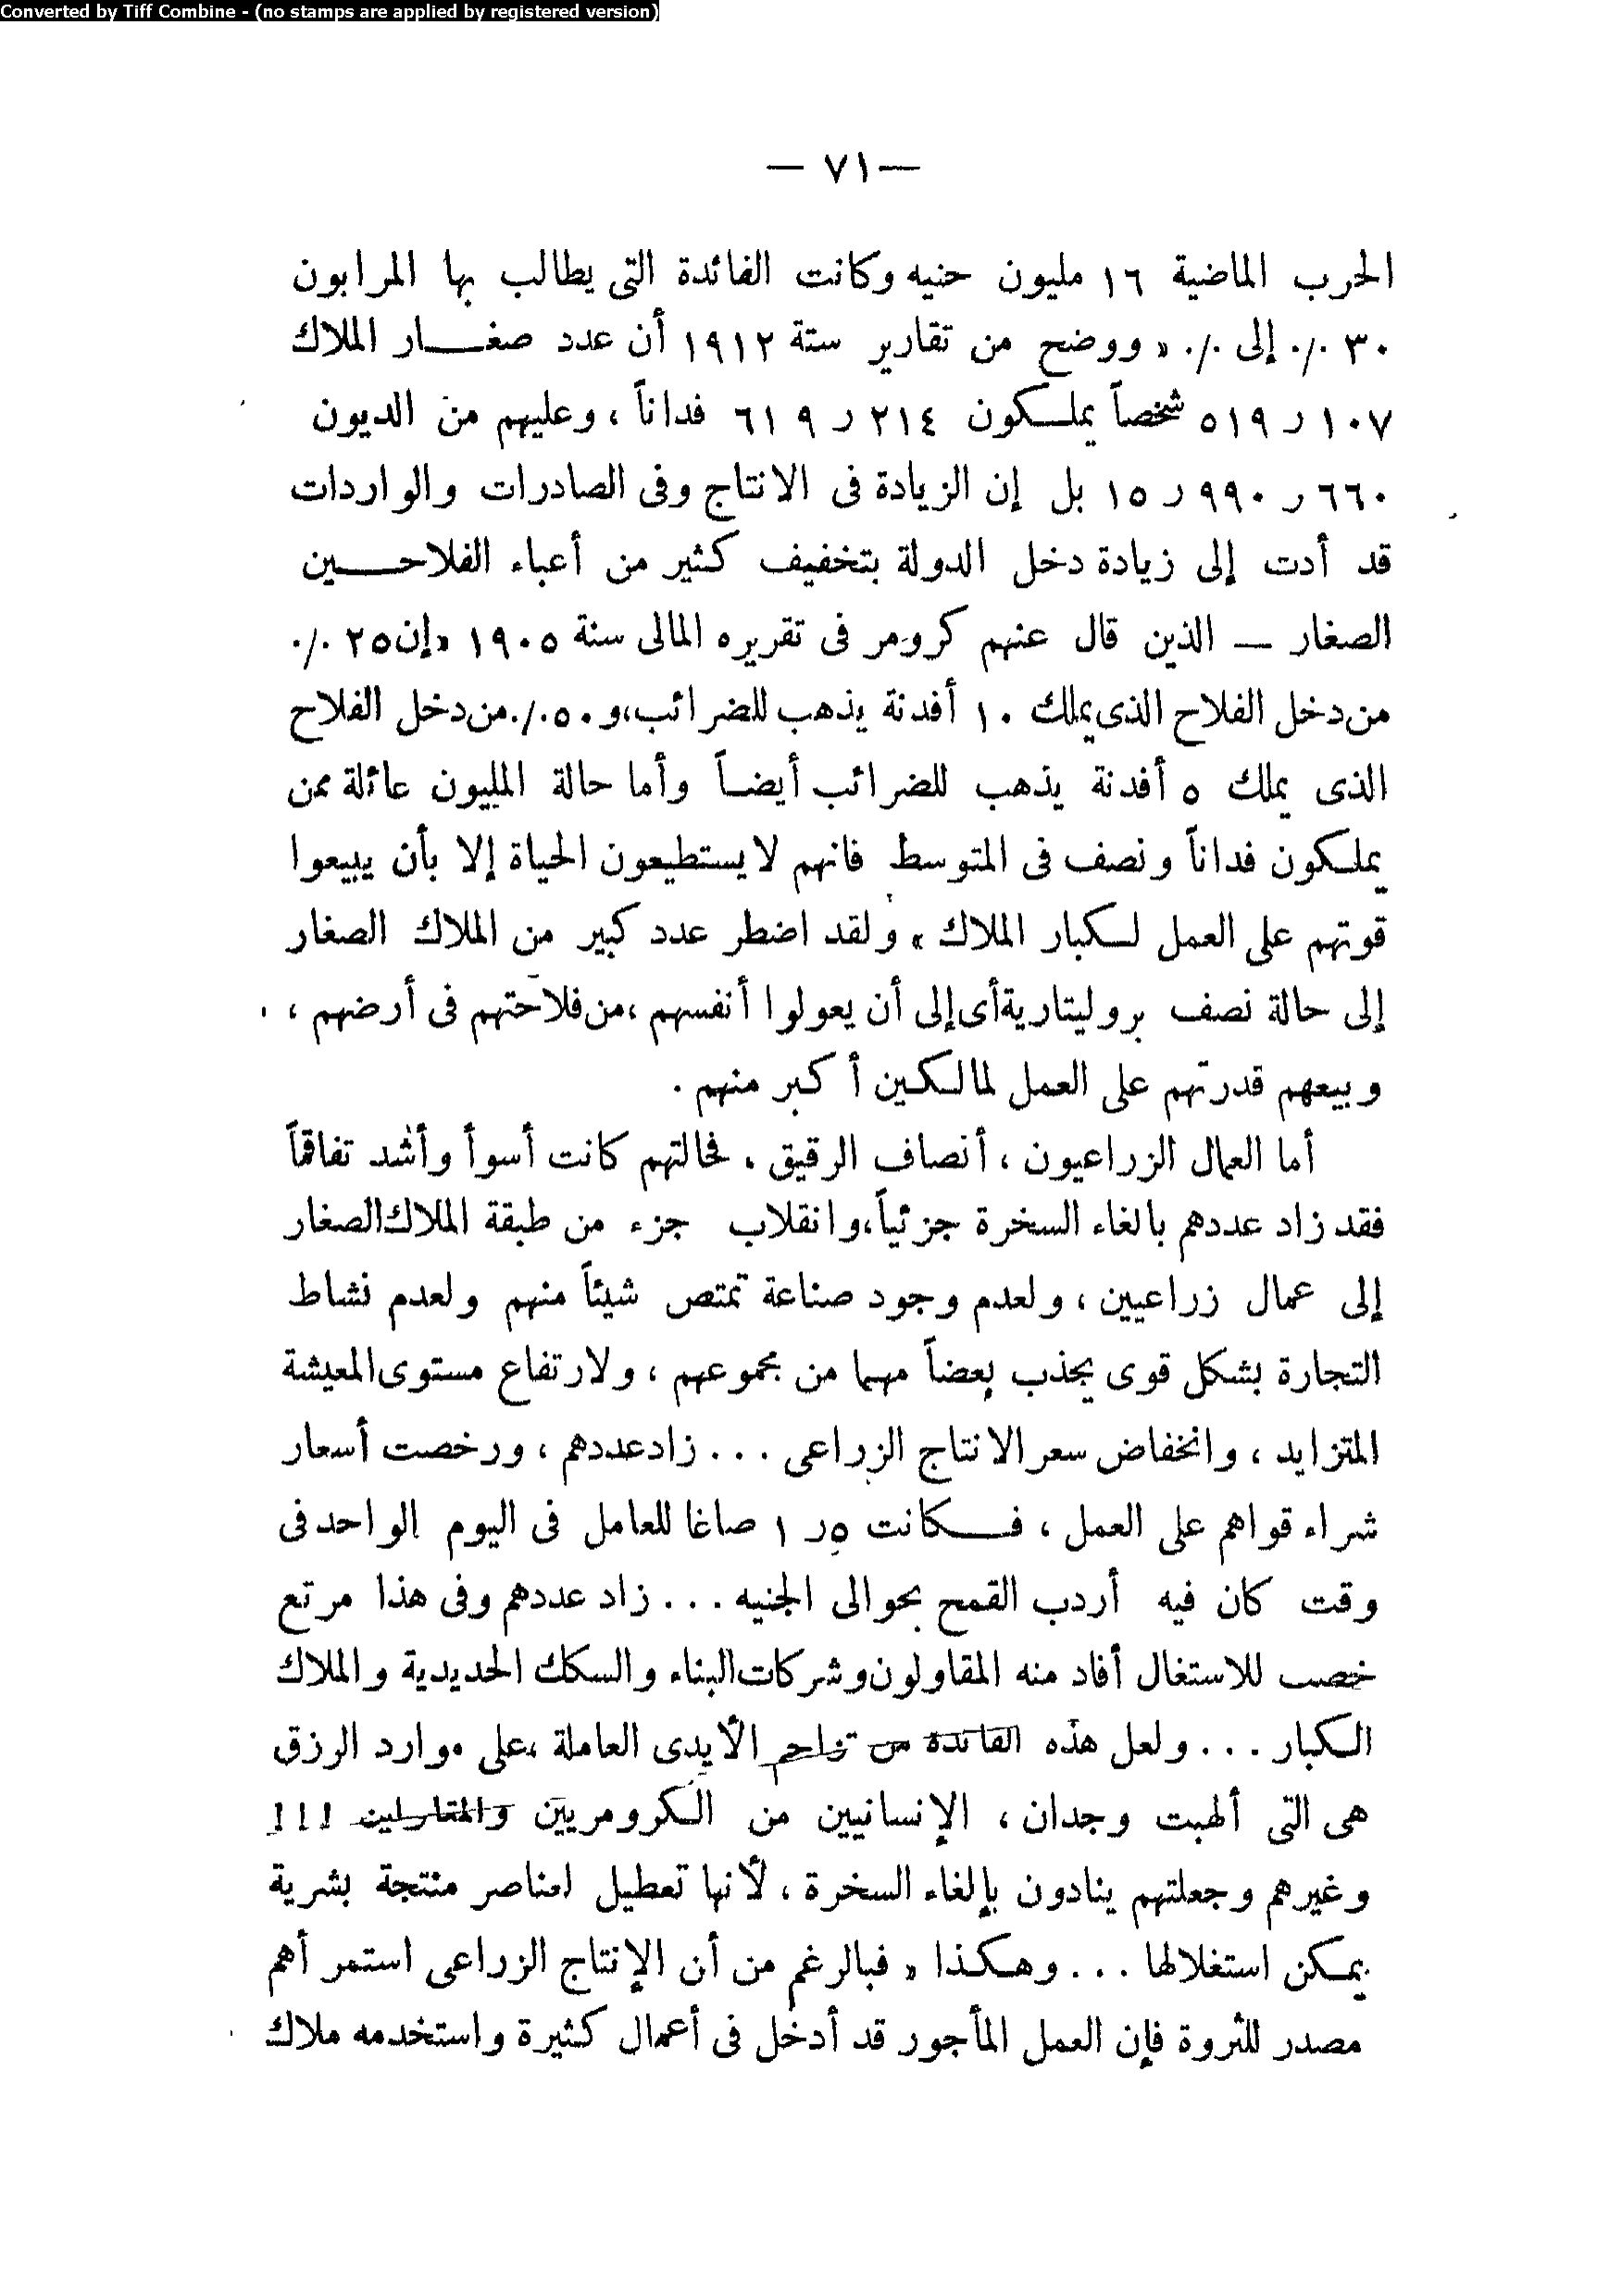 Converted by Tiff Combine - (no stamps are applied by registered version)
— ٧١ —
الحرب الماضية ١٦ مليون حنيه وكانت الفائدة التى يطالب بها المرابون
٣٠ ٪ إلى ٪ « ووضح من تقارير ستة ١٩١٢ أن عدد صغار الملاك
١٠٧ ر ٥١٩ شخصاً يملكون ٢١٤ ر ٦١٩ فداناً ، وعليهم من الديون
٦٦٠ ر ٩٩٠ ر ١٥ بل إن الزيادة فى الانتاج وفى الصادرات والواردات
قد أدت إلى زيادة دخل الدولة بتخفيف كثير من أعباء الفلاحين
الصغار — الذين قال عنهم كرومر فى تقريره المالى سنة ١٩٠٥ «إن ٢٥ ٪
من دخل الفلاح الذى يملك ١٠ أفدنة يذهب للضرائب،و ٥٠٪ من دخل الفلاح
الذى يملك ٥ أفدنة يذهب للضرائب أيضاً وأما حالة المليون عائلة ممن
يملكون فداناً ونصف فى المتوسط فانهم لايستطيعون الحياة إلا بأن يبيعوا
قوتهم على العمل لكبار الملاك » ولقد اضطر عدد كبير من الملاك الصغار
إلى حالة نصف بروليتارية أى إلى أن يعولوا أنفسهم ،من فلاحتهم فى أرضهم ،
وبيعهم قدرتهم على العمل لمالكين أكبر منهم .
أما العمال الزراعيون ، أنصاف الرقيق . فحالتهم كانت أسوأ وأشد تفاقماً
فقد زاد عددهم بالغاء السخرة جزئياً،وانقلاب جزء من طبقة الملاك الصغار
إلى عمال زراعيين ، ولعدم وجود صناعة تمتص شيئاً منهم ولعدم نشاط
التجارة بشكل قوى يجذب بعضاً مهما من مجموعهم ، ولارتفاع مستوى المعيشة
المتزايد ، وانخفاض سعر الانتاج الزراعى ... زاد عددهم ، ورخصت أسعار
شراء قواهم على العمل ، فكانت ٥ر ١ صاغا للعامل فى اليوم الواحد فى
وقت كان فيه أردب القمح بحوالى الجنيه ... زاد عددهم وفى هذا مرتع
خصب للاستغلال أفاد منه المقاولون وشركات البناء والسكك الحديدية والملاك
الكبار ... ولعل هذه الفائدة من تزاحم الأيدى العاملة ،على موارد الرزق
هى التى ألهبت وجدان ، الإنسانيين من الكرومريين والمقاولين !!!
وغيرهم وجعلتهم ينادون بإلغاء السخرة ، لأنها تعطيل لعناصر منتجة بشرية
يمكن استغلالها ... وهكذا « فبالرغم من أن الإنتاج الزراعى استمر أهم
مصدر للثروة فإن العمل المأجور قد أدخل فى أعمال كثيرة واستخدمه ملاك